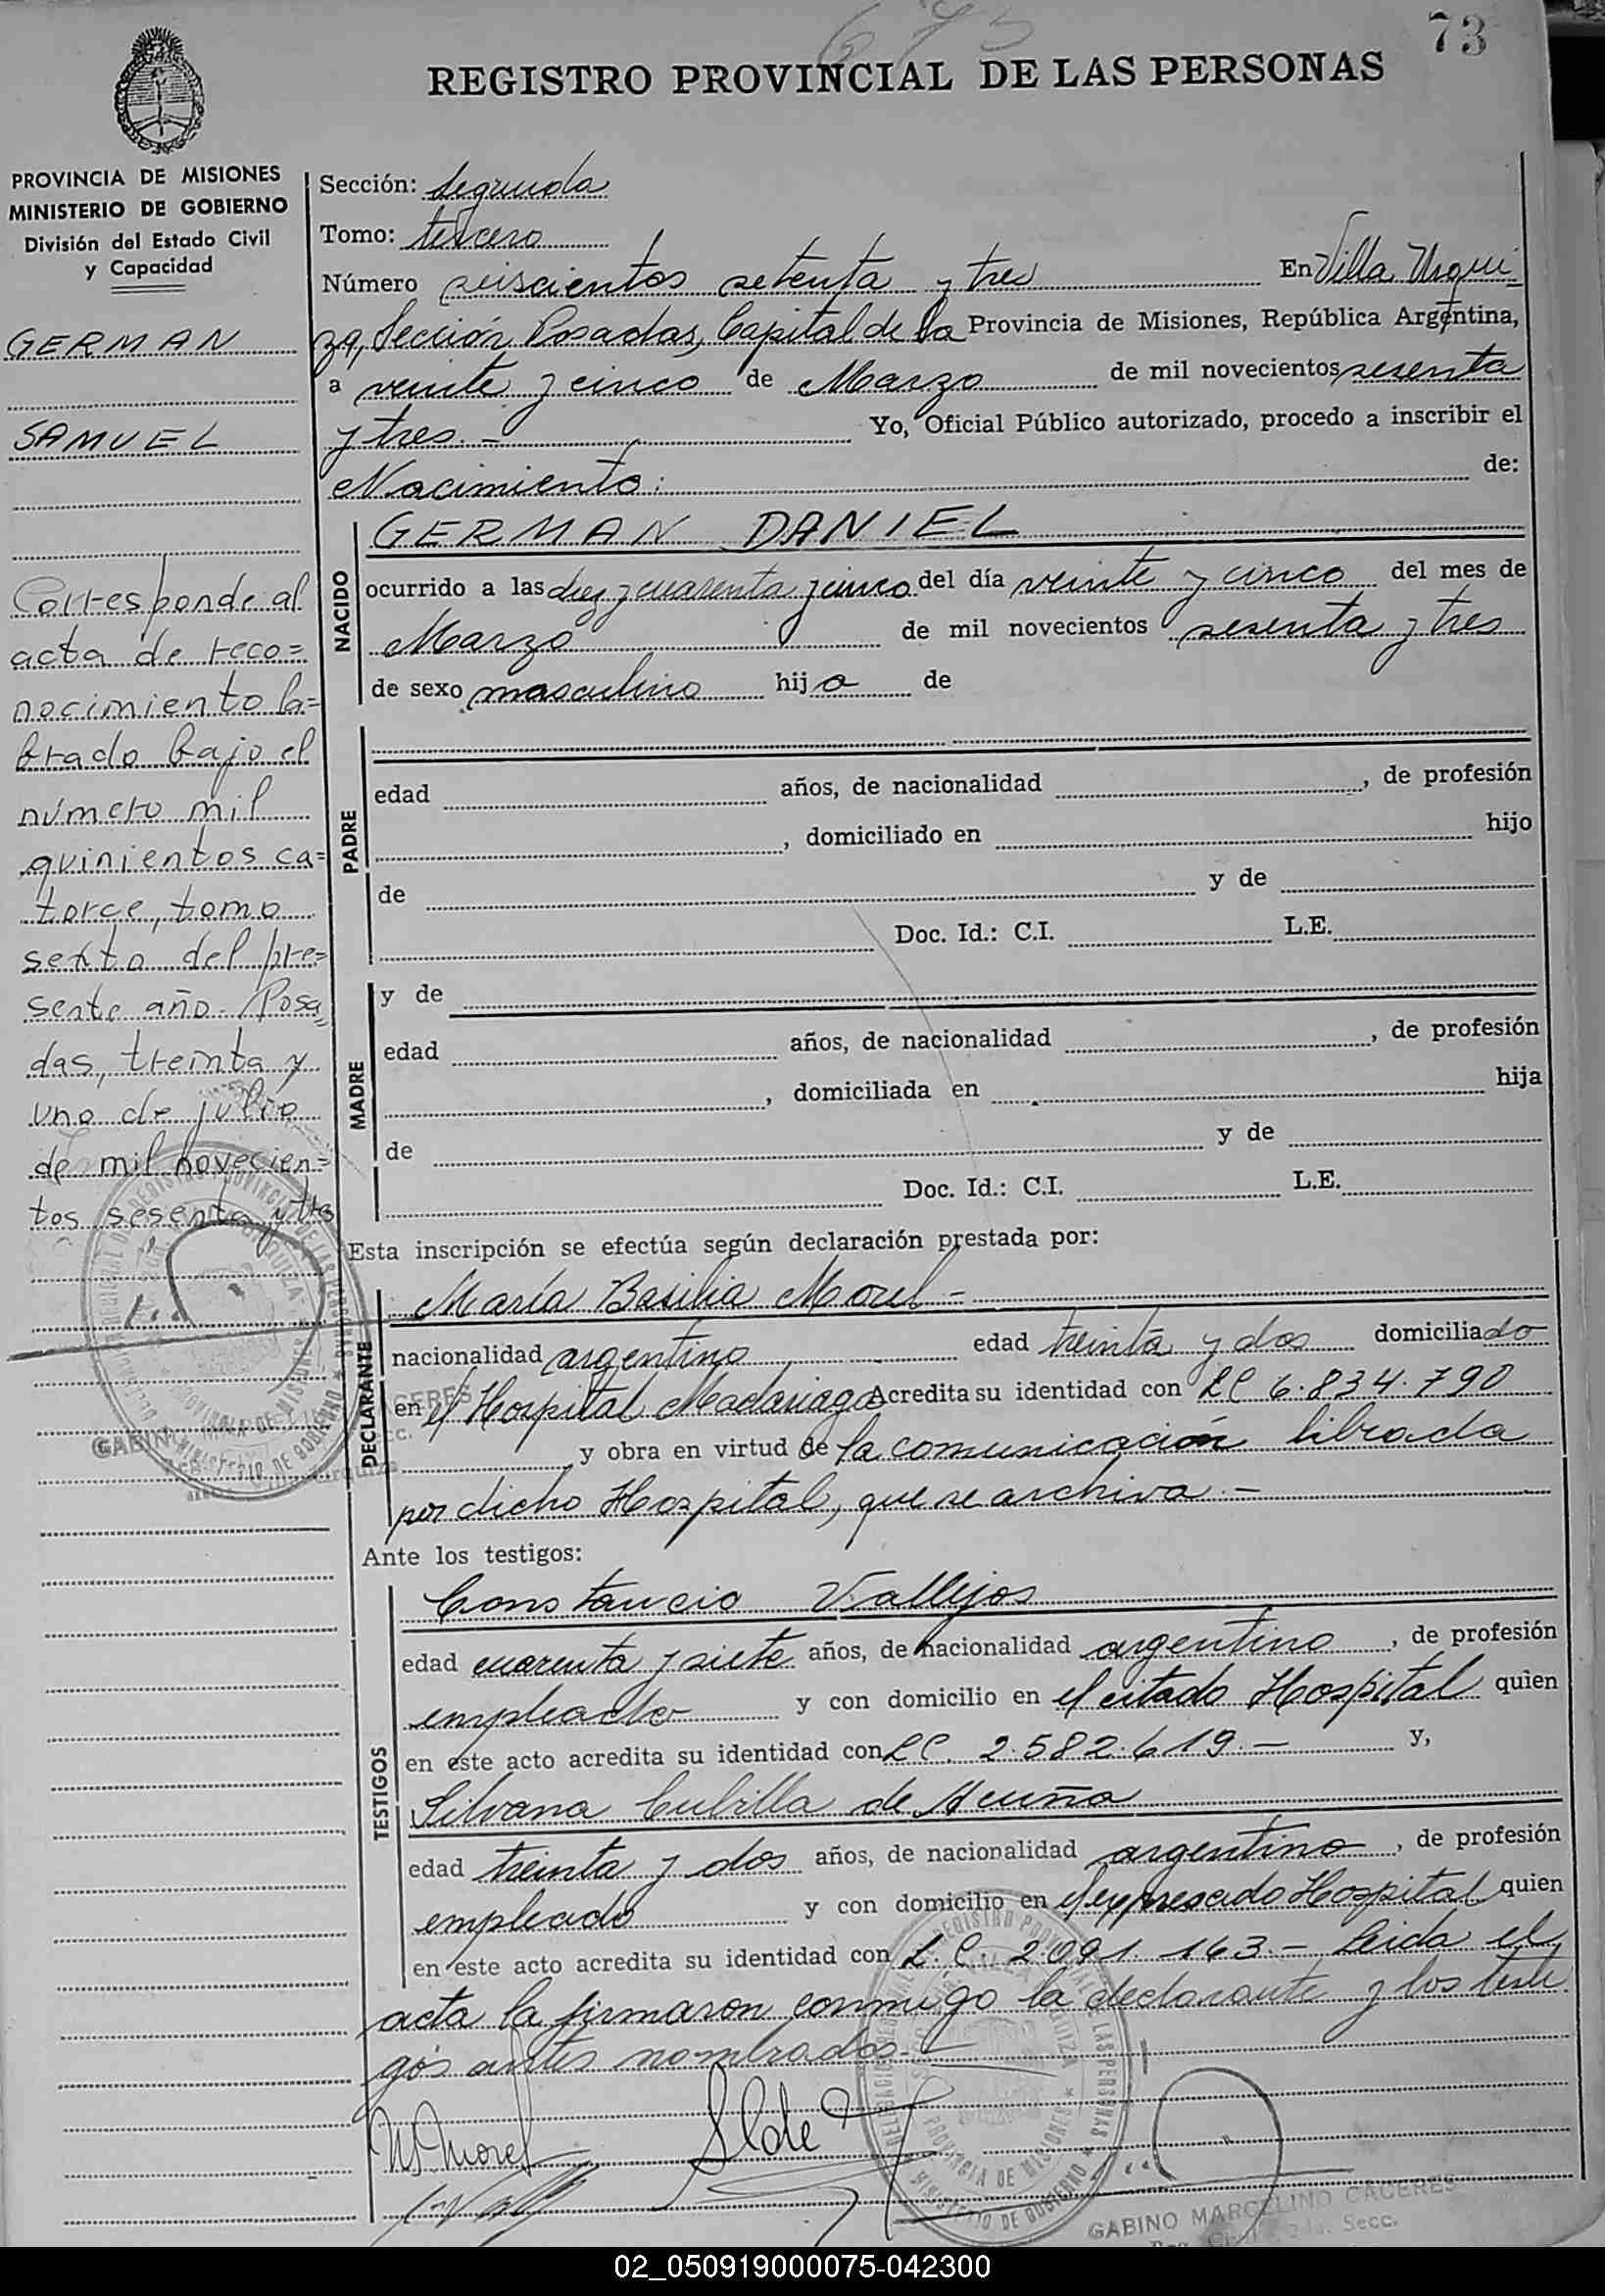 73
673
REGISTRO PROVINCIAL DE LAS PERSONAS
PROVINCIA DE MISIONES
MINISTERIO DE GOBIERNO
División del Estado Civil
y Capacidad
GERMAN
SAMUEL
Corresponde al
acta de reco=
nocimiento la=
brado bajo el
número mil
quinientos ca=
torce, tomo
sexto del pre=
sente año. Posa=
das, treinta y
uno de julio
de mil novecien=
tos sesenta y tres
Sección: Segunda
Tomo: tercero
Número seiscientos setenta y tres En Villa Urqui
za, Sección Posadas, Capital de la Provincia de Misiones, República Argentina,
a veinte y cinco de Marzo de mil novecientos sesenta
y tres.- Yo, Oficial Público autorizado, procedo a inscribir el
Nacimiento: de:
NACIDO
GERMAN DANIEL
ocurrido a las diez y cuarenta y cinco del día veinte y cinco del mes de
Marzo de mil novecientos sesenta y tres
de sexo masculino hijo de
PADRE
edad años, de nacionalidad , de profesión
, domiciliado en hijo
de y de
Doc. Id.: C.I. L.E.
MADRE
y de
edad años, de nacionalidad , de profesión
, domiciliada en hija
de y de
Doc. Id.: C.I. L.E.
Esta inscripción se efectúa según declaración prestada por:
DECLARANTE
María Basilia Morel-
nacionalidad argentino edad treinta y dos domiciliado
en el Hospital Madariaga Acredita su identidad con LC 6.834.790
y obra en virtud de la comunicación librada
por dicho Hospital, que se archiva.-
Ante los testigos:
TESTIGOS
Constancio Vallejos
edad cuarenta y siete años, de nacionalidad argentino, de profesión
empleado y con domicilio en el citado Hospital quien
en este acto acredita su identidad con LC. 2.582.619.- y,
Silvana Cubilla de Acuña
edad treinta y dos años, de nacionalidad argentino, de profesión
empleado y con domicilio en el expresado Hospital quien
en este acto acredita su identidad con L.C. 2.091.163.- Leida el
acta la firmaron conmigo la declarante y los testi
gos antes nombrados.-
M B Morel
GABINO MARCELINO CACERES
2da. Secc.
02_050919000075-042300